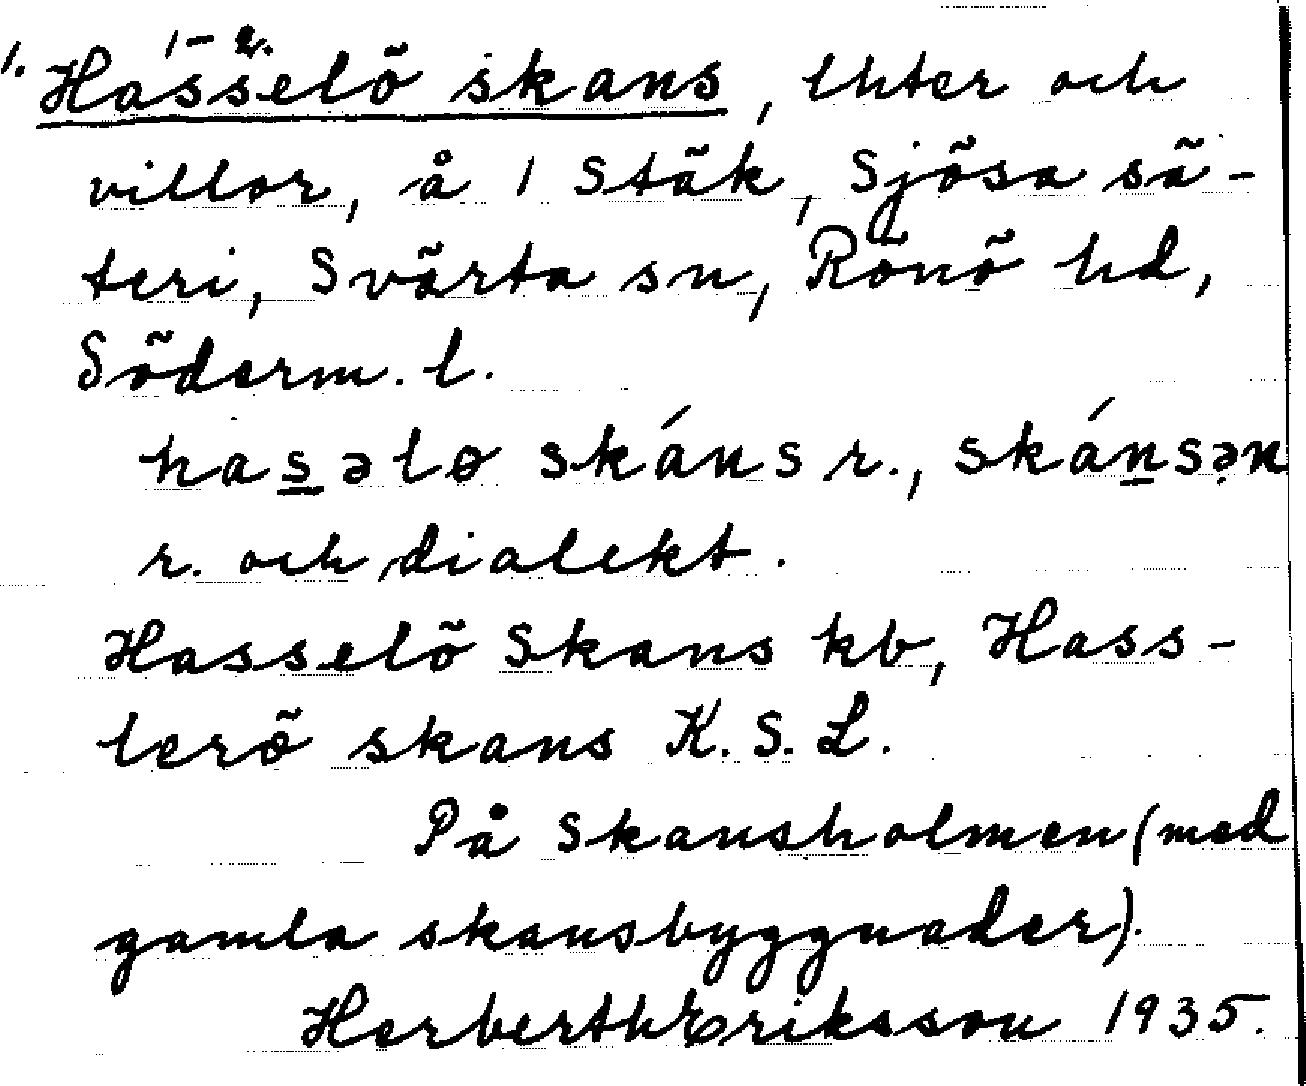 1. Hasselö skans, lhter och
1-2.
villor, å 1 Stäk, Sjösa sä-
teri, Svärta sn, Rönö hd,
Söderm. l.
hasəlo skáns r., skánsən
r. och dialekt.
Hasselö Skans kb, Hass-
lerö skans K.S.L.
På Skansholmen (med
gamla skansbyggnader).
Herberth Eriksson 1935.